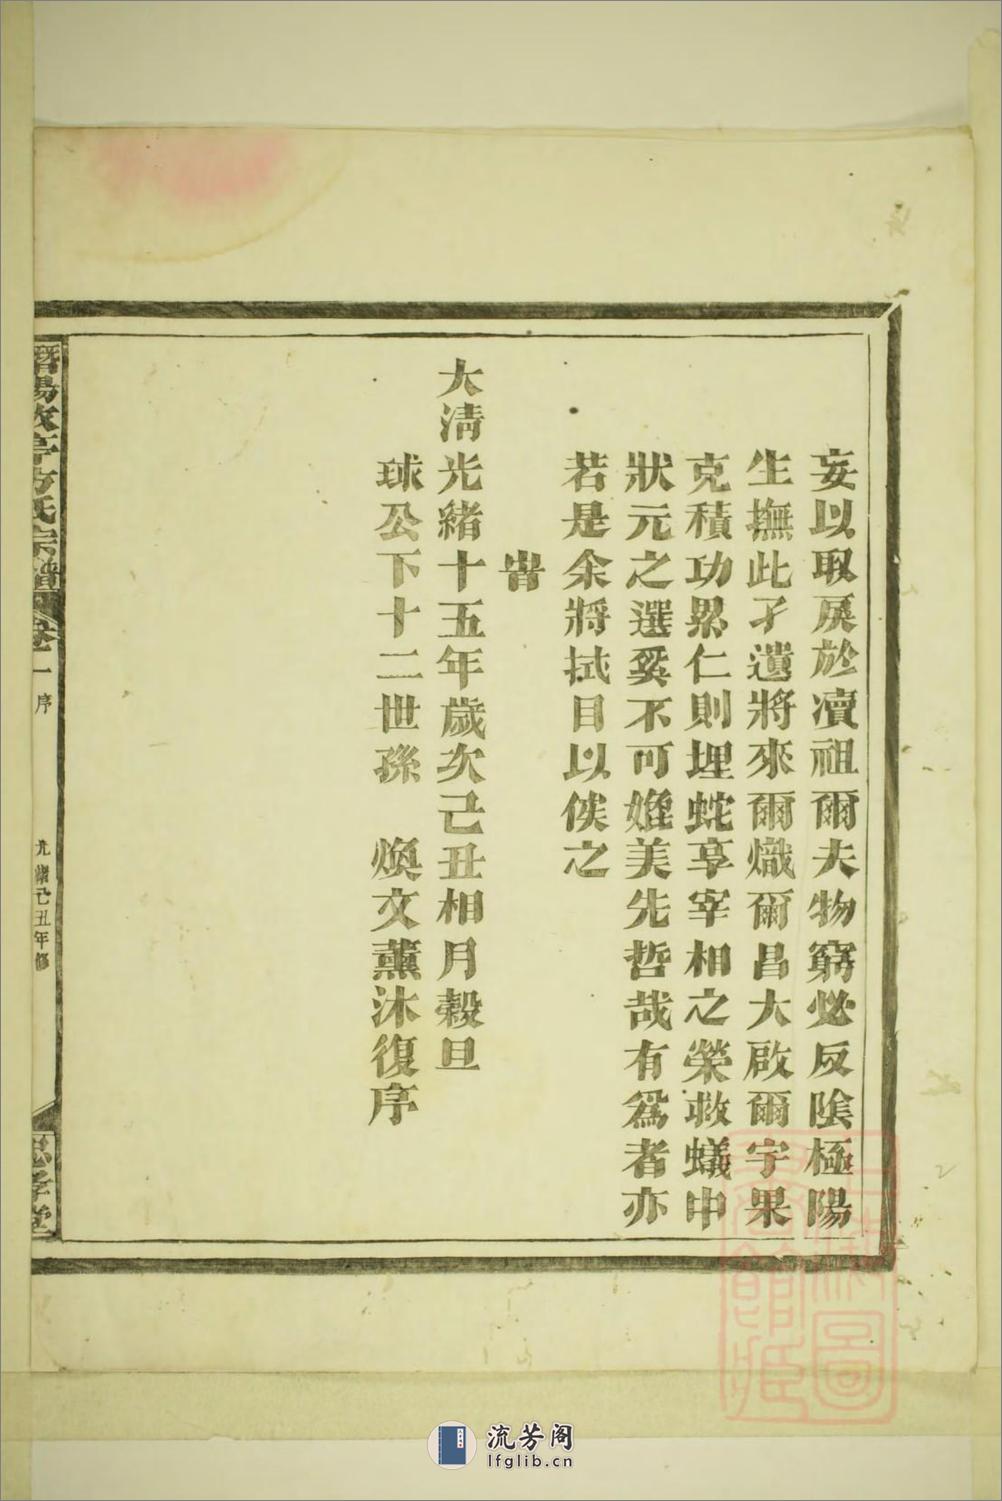 妄以取戾於瀆祖爾夫物窮必反陰極陽
生撫此孑遺將來爾熾爾昌大啟爾宇果
克積功累仁則埋蛇享宰相之榮救蟻中
狀元之選奚不可媲美先哲哉有爲者亦
若是余將拭目以俟之
旹
大清光緒十五年歲次己丑相月穀旦
球公下十二世孫 煥文薰沐復序
方氏宗譜
卷一
序
光緒己丑年修
忠孝堂
圖
館
流芳阁
lfglib.cn